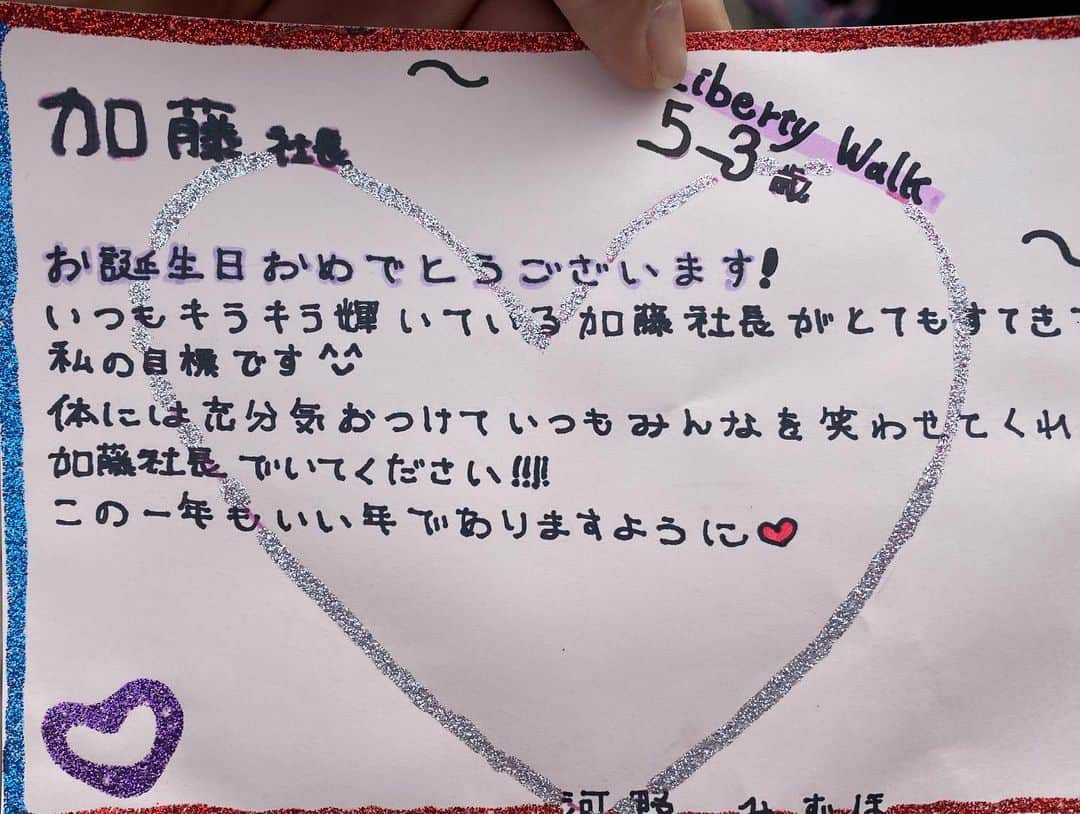 加藤 社長
Liberty Walk
53歳
お誕生日おめでとうございます!
いつもキラキラ輝いている加藤社長がとてもすてきで
私の目標です^^
体には充分気おつけていつもみんなを笑わせてくれ
加藤社長でいてください!!!!
この一年もいい年でありますように❤
みずほ